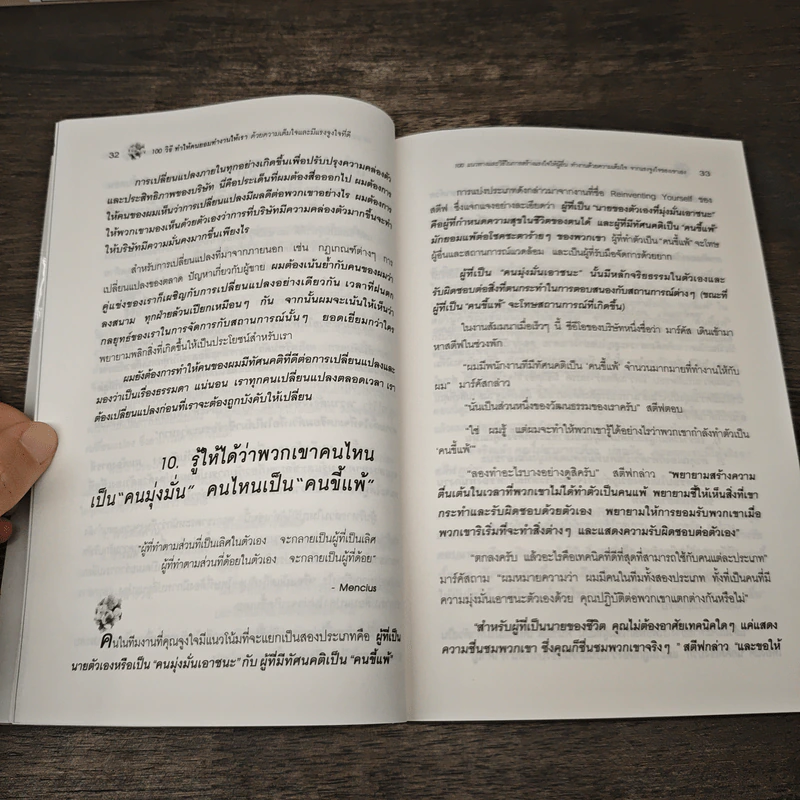 32
100 วิธี ทำให้คนยอมทำงานให้เรา ด้วยความเต็มใจและมีแรงจูงใจที่ดี
การเปลี่ยนแปลงภายในทุกอย่างเกิดขึ้นเพื่อปรับปรุงความคล่องตัว
และประสิทธิภาพของบริษัท นี่คือประเด็นที่ผมต้องสื่อออกไป ผมต้องการ
ให้คนของผมเห็นว่าการเปลี่ยนแปลงมีผลดีต่อพวกเขาอย่างไร ผมต้องการ
ให้พวกเขามองเห็นด้วยตัวเองว่าการที่บริษัทมีความคล่องตัวมากขึ้นจะทำ
ให้บริษัทมีความมั่นคงมากขึ้นเพียงไร
สำหรับการเปลี่ยนแปลงที่มาจากภายนอก เช่น กฎเกณฑ์ต่างๆ การ
เปลี่ยนแปลงของตลาด ปัญหาเกี่ยวกับผู้ขาย ผมต้องเน้นย้ำกับคนของผมว่า
คู่แข่งของเราก็เผชิญกับการเปลี่ยนแปลงอย่างเดียวกัน เวลาที่ฝนตก
ลงสนาม ทุกฝ่ายล้วนเปียกเหมือนๆ กัน จากนั้นผมจะเน้นให้เห็นว่า
กลยุทธ์ของเราในการจัดการกับสถานการณ์นั้นๆ ยอดเยี่ยมกว่าใคร
พยายามพลิกสิ่งที่เกิดขึ้นให้เป็นประโยชน์สำหรับเรา
ผมยังต้องการทำให้คนของผมมีทัศนคติที่ดีต่อการเปลี่ยนแปลงและ
มองว่าเป็นเรื่องธรรมดา แน่นอน เราทุกคนเปลี่ยนแปลงตลอดเวลา เรา
ต้องเปลี่ยนแปลงก่อนที่เราจะต้องถูกบังคับให้เปลี่ยน
10. รู้ให้ได้ว่าพวกเขาคนไหน
เป็น "คนมุ่งมั่น" คนไหนเป็น "คนขี้แพ้"
"ผู้ที่ทำตามส่วนที่เป็นเลิศในตัวเอง จะกลายเป็นผู้ที่เป็นเลิศ
ผู้ที่ทำตามส่วนที่ด้อยในตัวเอง จะกลายเป็นผู้ที่ด้อย"
- Mencius
คนในทีมงานที่คุณจูงใจมีแนวโน้มที่จะแยกเป็นสองประเภทคือ ผู้ที่เป็น
นายตัวเองหรือเป็น "คนมุ่งมั่นเอาชนะ" กับ ผู้ที่มีทัศนคติเป็น "คนขี้แพ้"
33
การแบ่งประเภทดังกล่าวมาจากงานที่ชื่อ Reinventing Yourself ของ
สตีฟ ซึ่งแจกแจงอย่างละเอียดว่า ผู้ที่เป็น "นายของตัวเองที่มุ่งมั่นเอาชนะ"
คือผู้ที่กำหนดความสุขในชีวิตของตนได้ และผู้ที่มีทัศนคติเป็น "คนขี้แพ้"
มักยอมแพ้ต่อโชคชะตาร้ายๆ ของพวกเขา ผู้ที่ทำตัวเป็น "คนขี้แพ้" จะโทษ
ผู้อื่นและสถานการณ์แวดล้อม และเป็นผู้ที่รับมือจัดการด้วยยาก
ผู้ที่เป็น "คนมุ่งมั่นเอาชนะ" นั้นมีหลักจริยธรรมในตัวเองและ
รับผิดชอบต่อสิ่งที่ตนกระทำในการตอบสนองกับสถานการณ์ต่างๆ (ขณะที่
ผู้ที่เป็น "คนขี้แพ้" จะโทษสถานการณ์ที่เกิดขึ้น)
ในงานสัมมนาเมื่อเร็วๆ นี้ ซีอีโอของบริษัทหนึ่งชื่อว่า มาร์คัส เดินเข้ามา
หาสตีฟในช่วงพัก
"ผมมีพนักงานที่มีทัศนคติเป็น 'คนขี้แพ้' จำนวนมากมายที่ทำงานให้กับ
ผม" มาร์คัสกล่าว
"นั่นเป็นส่วนหนึ่งของวัฒนธรรมของเราครับ" สตีฟตอบ
"ใช่ ผมรู้ แต่ผมจะทำให้พวกเขารู้ได้อย่างไรว่าพวกเขากำลังทำตัวเป็น
'คนขี้แพ้'"
"ลองทำอะไรบางอย่างดูสิครับ" สตีฟกล่าว "พยายามสร้างความ
ตื่นเต้นในเวลาที่พวกเขาไม่ได้ทำตัวเป็นคนแพ้ พยายามชี้ให้เห็นสิ่งที่เขา
กระทำและรับผิดชอบด้วยตัวเอง พยายามให้การยอมรับพวกเขาเมื่อ
พวกเขาริเริ่มที่จะทำสิ่งต่างๆ และแสดงความรับผิดชอบต่อตัวเอง"
"ตกลงครับ แล้วอะไรคือเทคนิคที่ดีที่สุดที่สามารถใช้กับคนแต่ละประเภท"
มาร์คัสถาม "ผมหมายความว่า ผมมีคนในทีมทั้งสองประเภท ทั้งที่เป็นคนที่มี
ความมุ่งมั่นเอาชนะตัวเองด้วย คุณปฏิบัติต่อพวกเขาแตกต่างกันหรือไม่"
"สำหรับผู้ที่เป็นนายของชีวิต คุณไม่ต้องอาศัยเทคนิคใดๆ แค่แสดง
ความชื่นชมพวกเขา ซึ่งคุณก็ชื่นชมพวกเขาจริงๆ " สตีฟกล่าว "และขอให้